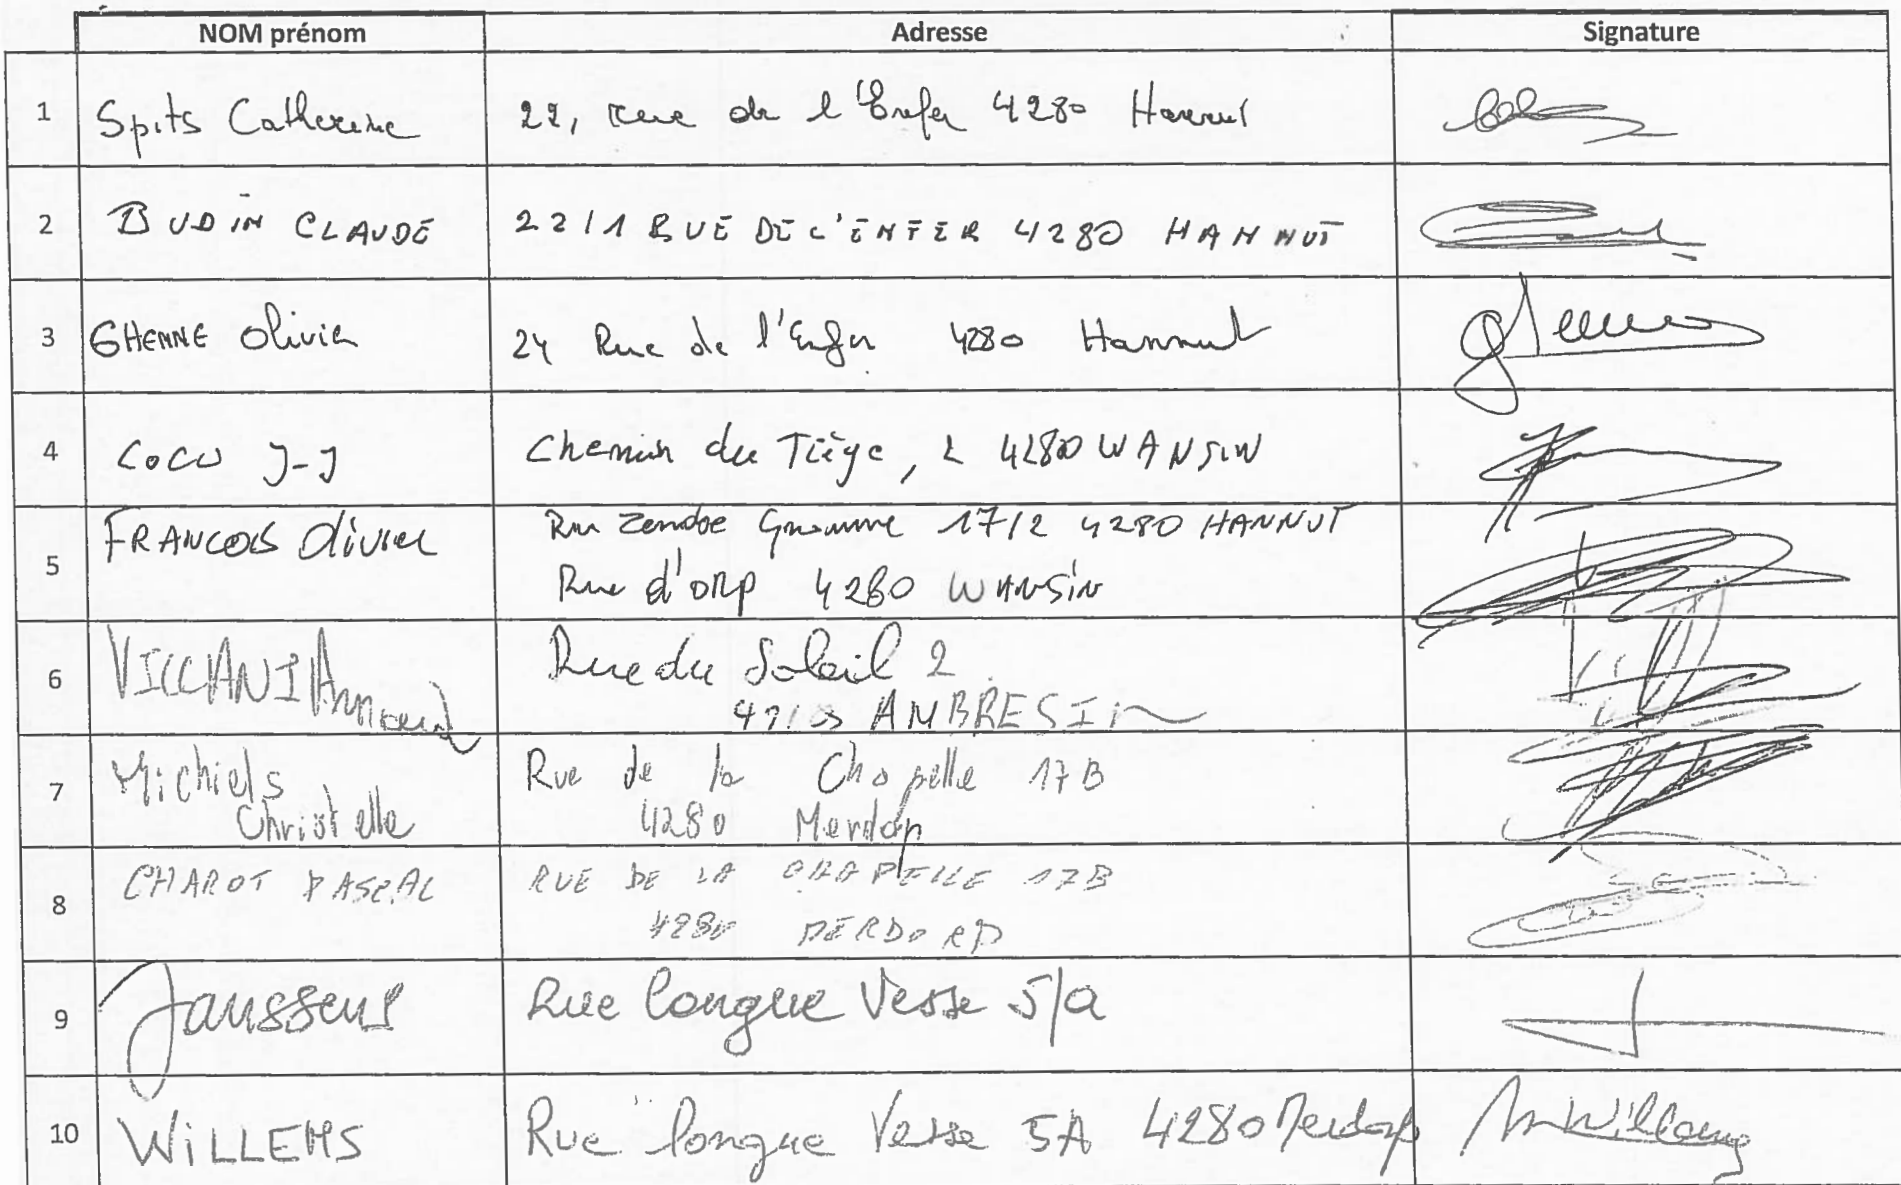 NOM prénom Adresse Signature
1 Spits Catherine 22, rue de l'Enfer 4280 Hannut
2 BUDIN CLAUDE 22/1 RUE DE L'ENFER 4280 HANNUT
3 GHENNE Olivier 24 Rue de l'Enfer 4280 Hannut
4 COCU J-J Chemin du Tiège, 2 4280 WANSIN
5 FRANCOIS Olivier Rue Zenobe Gramme 17/2 4280 HANNUT
Rue d'ORP 4280 WANSIN
6 Arnaud Rue du Soleil 2
AMBRESIN
7 Michiels Rue de la Chapelle 17B
Christelle 4280 Merdop
8 CHAROT PASCAL RUE DE LA CHAPELLE 17B
4280 MERDORP
9 Janssens Rue longue Vesse 5/a
10 WiLLEMS Rue longue Vesse 5A 4280 Merdorp